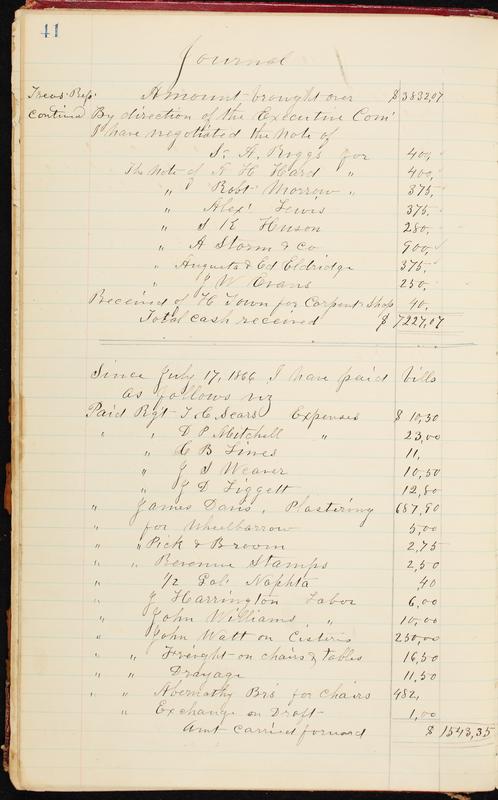 41
Journal
Treas. Rep. Amount brought over $3832,07
Continued By direction of the Executive Com.
I have negotiated the Note of
A. Riggs for 400,
The Note of H Hard " 400,
" Robt Morrow " 375,
" Alexr Lewis 375,
" Huson 280,
" A Storm & Co 900,
" Augusta & Ed Eldridge 375,
" J W Evans 250,
Received of H Town for Carpent. Shop 40,
Total cash received $ 7227,07
Since July 17, 1866 I have paid bills
as follows viz
Paid Rgt T. C. Sears Expenses $ 10,50
" " D P Mitchell " 23,00
" C B Lines 11,
" J S Weaver 10,50
" J D Liggett 12,80
" James Davis, Plastering 687,90
" for Wheelbarrow 5,00
" " Pick & Broom 2,75
" " Revenue Stamps 2,50
" 1/2 Gal. Naphta 40
" J Harrington Labor 6,00
" John Williams " 10,00
" John Watt on Cisterns 250,00
" " Freight on chairs & tables 16,50
" " Drayage 11,50
" " Abernathy Bros for Chairs 482,
" Exchange on Draft 1,00
Amt carried forward $ 1543,35